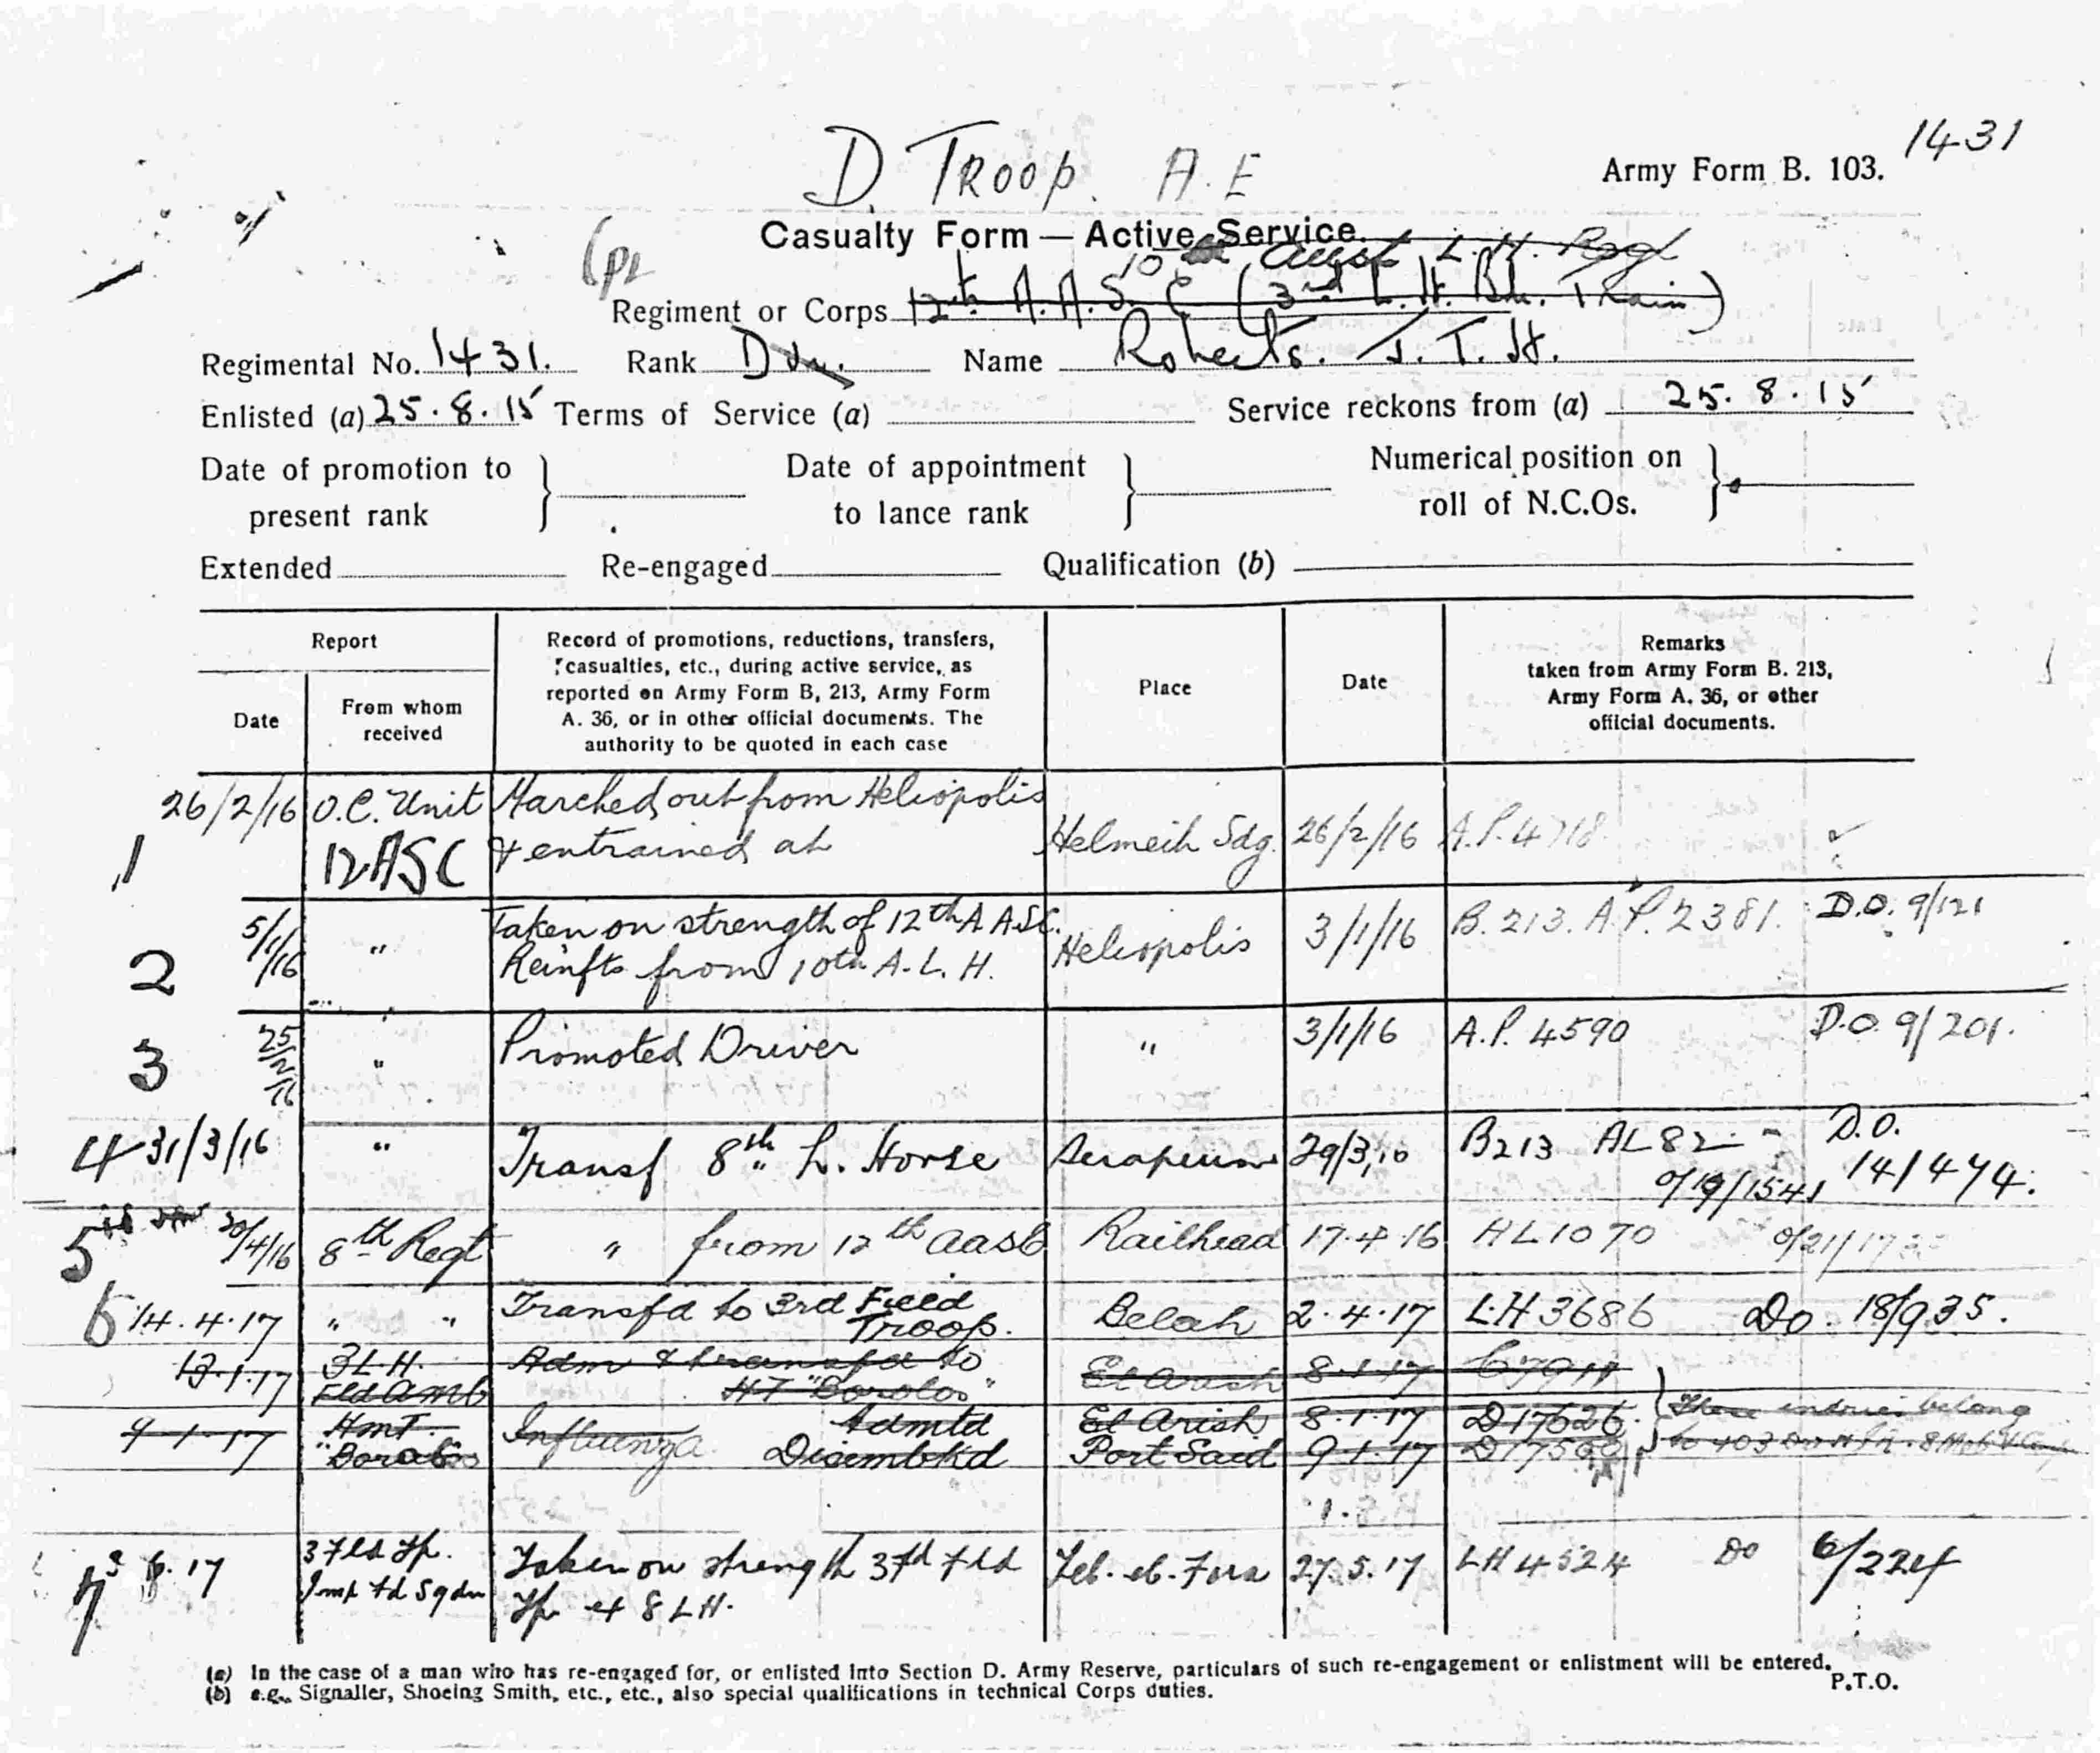 1431
D. Troop. A.E
Army Form B. 103.
Casualty Form — Active Service.
Cpl
10 Aust L. H. Regt
Regiment or Corps 12th A.A.S.C. (3rd L. H. Bde. Train)
Regimental No. 1431. Rank Dvr. Name Roberts. J. T. H.
Enlisted (a) 25.8.15 Terms of Service (a) Service reckons from (a) 25.8.15
Date of promotion to present rank } Date of appointment to lance rank } Numerical position on roll of N.C.Os. }
Extended Re-engaged Qualification (b)
Report
Date
From whom received
Record of promotions, reductions, transfers,
casualties, etc., during active service, as
reported on Army Form B, 213, Army Form
A. 36, or in other official documents. The
authority to be quoted in each case
Place
Date
Remarks
taken from Army Form B. 213,
Army Form A. 36, or other
official documents.
1 26/2/16 O.C. Unit Marched out from Heliopolis
12 ASC & entrained at Helmeih Sdg. 26/2/16 A.P. 4718
2 5/1/16 " Taken on strength of 12th A ASC.
Reinfts from 10th A. L. H. Heliopolis 3/1/16 B. 213. A.P. 2381. D.O. 9/121
3 25/2/16 " Promoted Driver " 3/1/16 A.P. 4590 D.O. 9/201.
4 31/3/16 " Transf 8th L. Horse Serapeum 29/3/16 B213 AL 82 - D.O.
0/19/1541 14/474.
5 20/4/16 8th Regt " from 12th aasc Railhead 17.4.16 AL1070 0/21/17
6 14.4.17 " " Transfd to 3rd Field
Troop. Belah 2.4.17 LH3686 Do. 18/935.
13.1.17 3L.H. Adm & transfd to
Fld Amb HT "Borolos" El Arish 8.1.17
9.1.17 HMT. Influenza Admtd El Arish 8.1.17 D17626. These entries belong
"Borolos" Disembkd Port Said 9.1.17 to
7 17 3 Fld Tp. Taken on strength 3rd Fld Tel-el-Fara 27.5.17 LH 4524 Do 6/224
Imp Fd Sqdn Tp ex 8 LH.
(a) In the case of a man who has re-engaged for, or enlisted into Section D. Army Reserve, particulars of such re-engagement or enlistment will be entered.
(b) e.g., Signaller, Shoeing Smith, etc., etc., also special qualifications in technical Corps duties.
P.T.O.